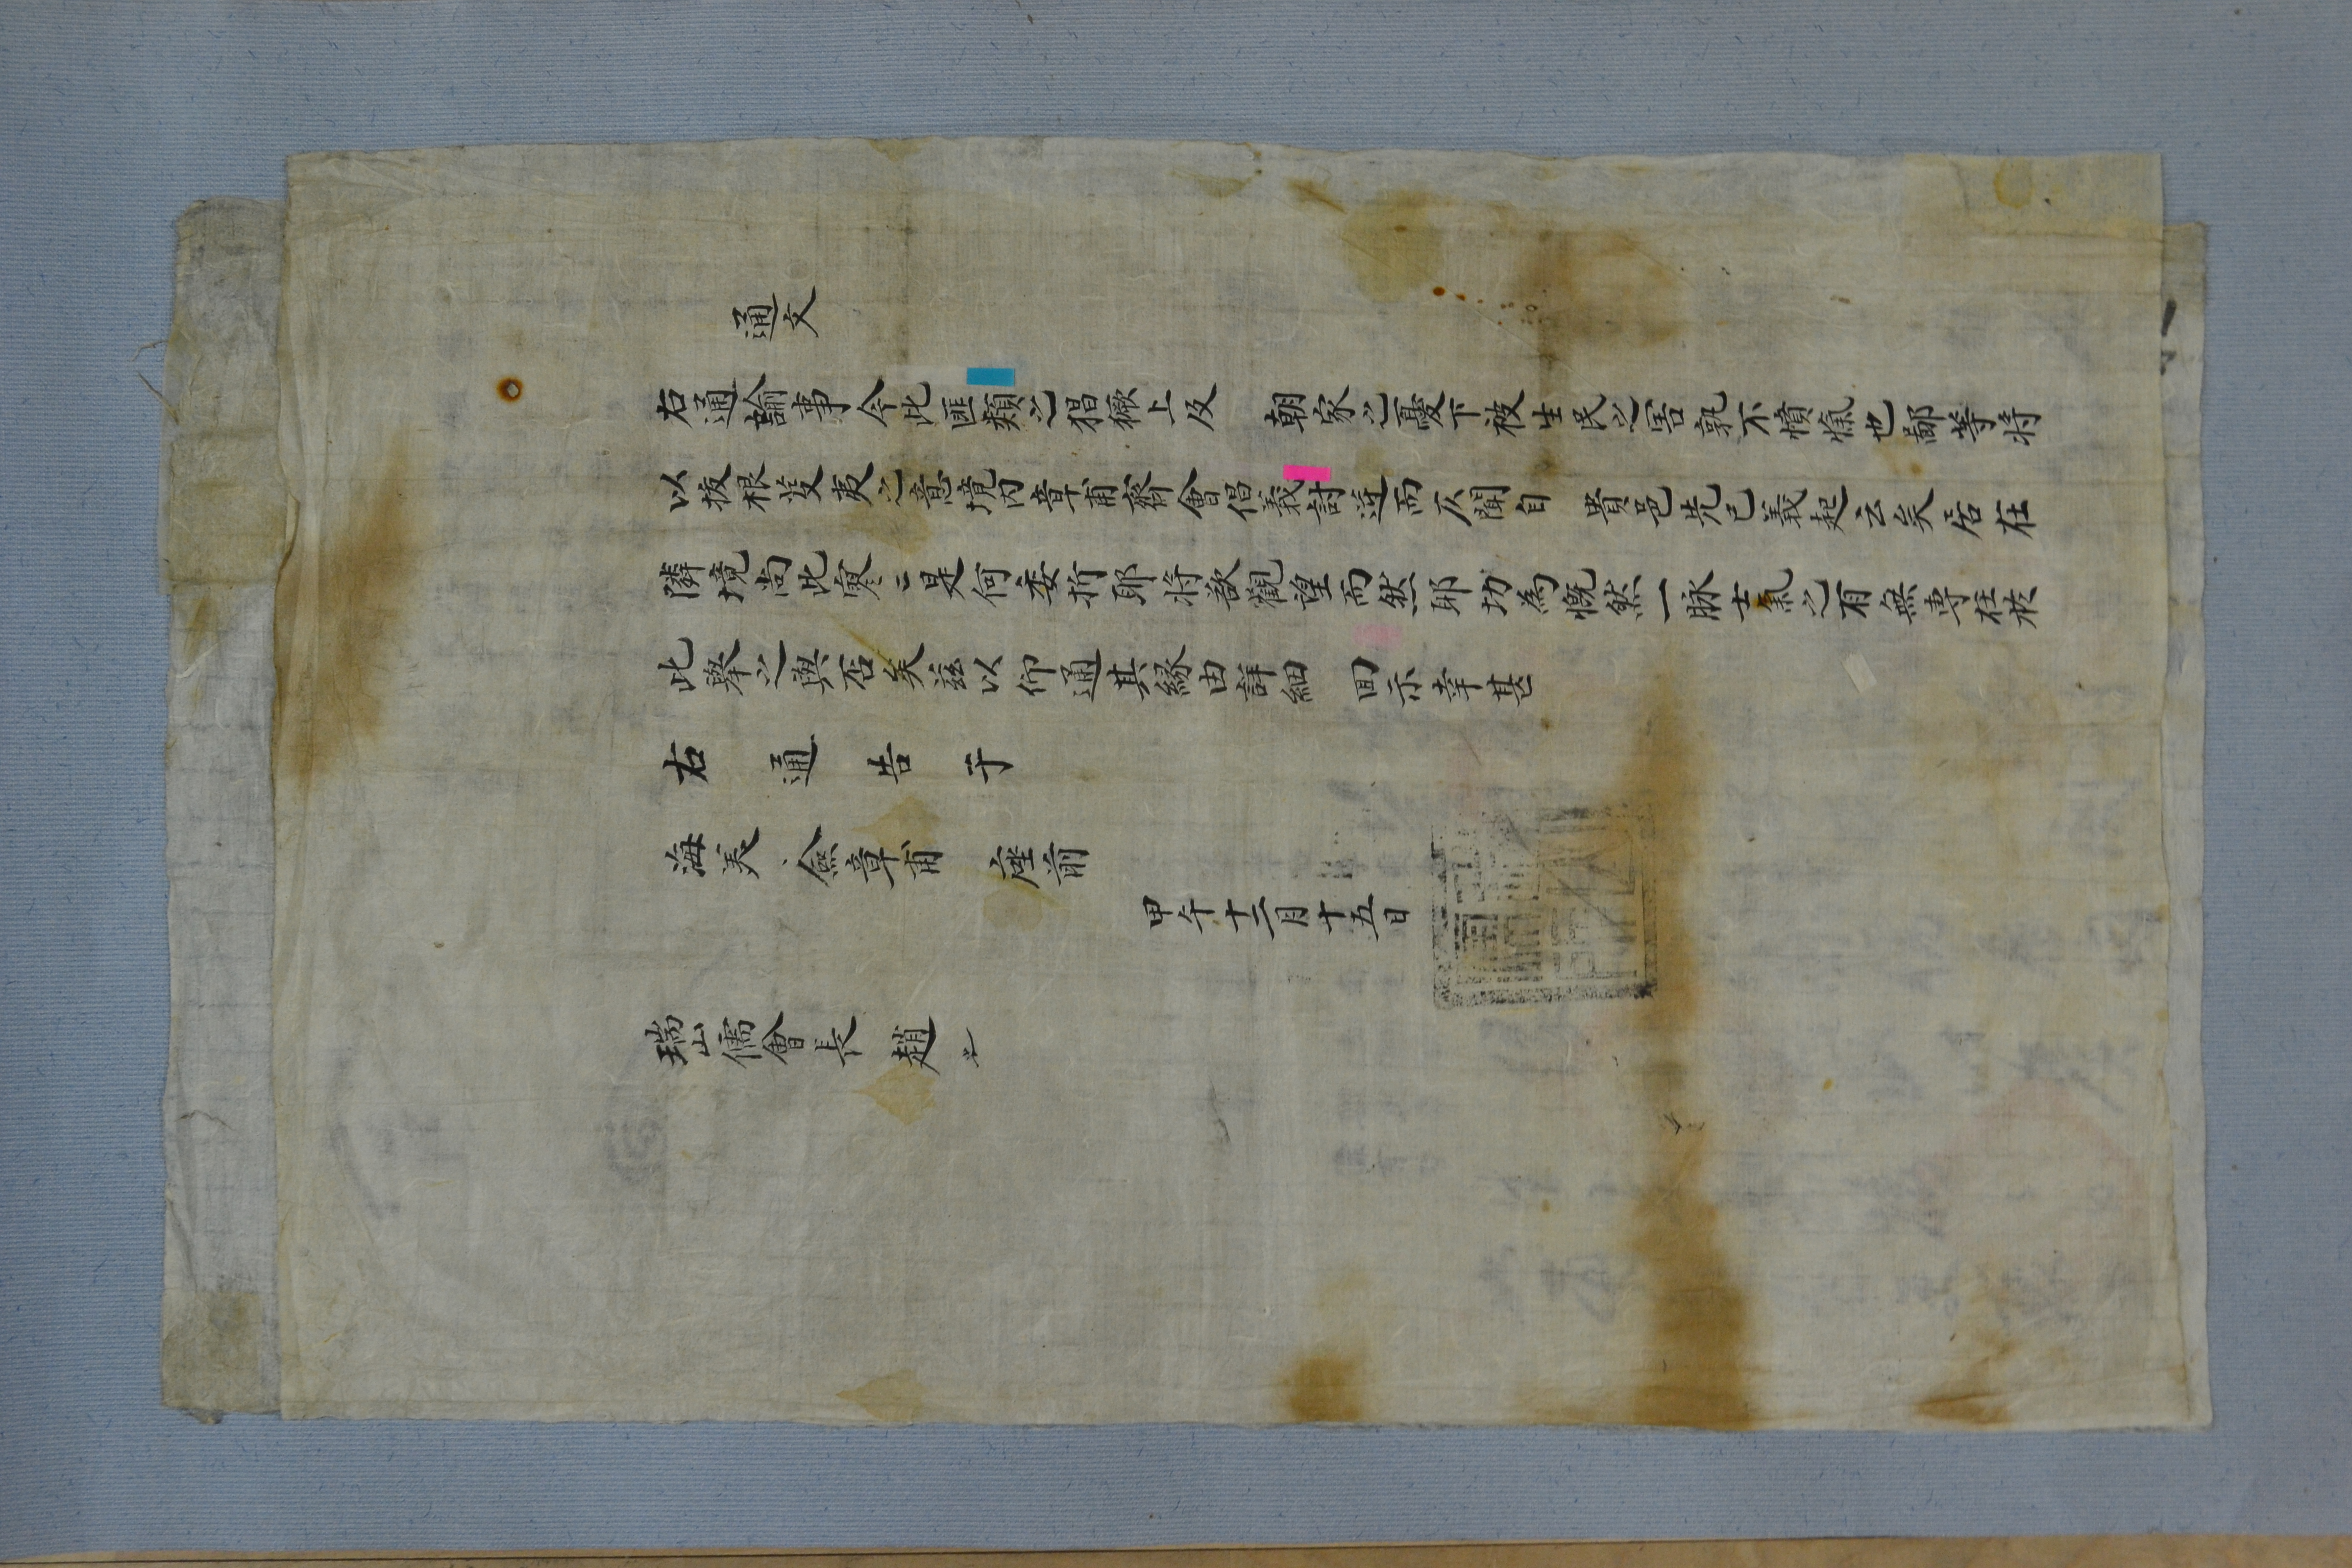 通文
右通諭事今此匪類之猖獗上及 朝家之憂下被生民之害孰不憤愾也鄙等将
以拔根芟夷之意境内章甫齊會倡義討逆而仄聞自 貴邑先已義起云矣居在
隣境尚此寥〻是何委折耶将欲觀望而然耶切為慨然一脉士氣之有無専在於
此擧之與否矣玆以仰通其緣由詳細 回示幸甚
右通告于
海美 僉章甫 座前
甲午十二月十五日
瑞山儒會長 趙